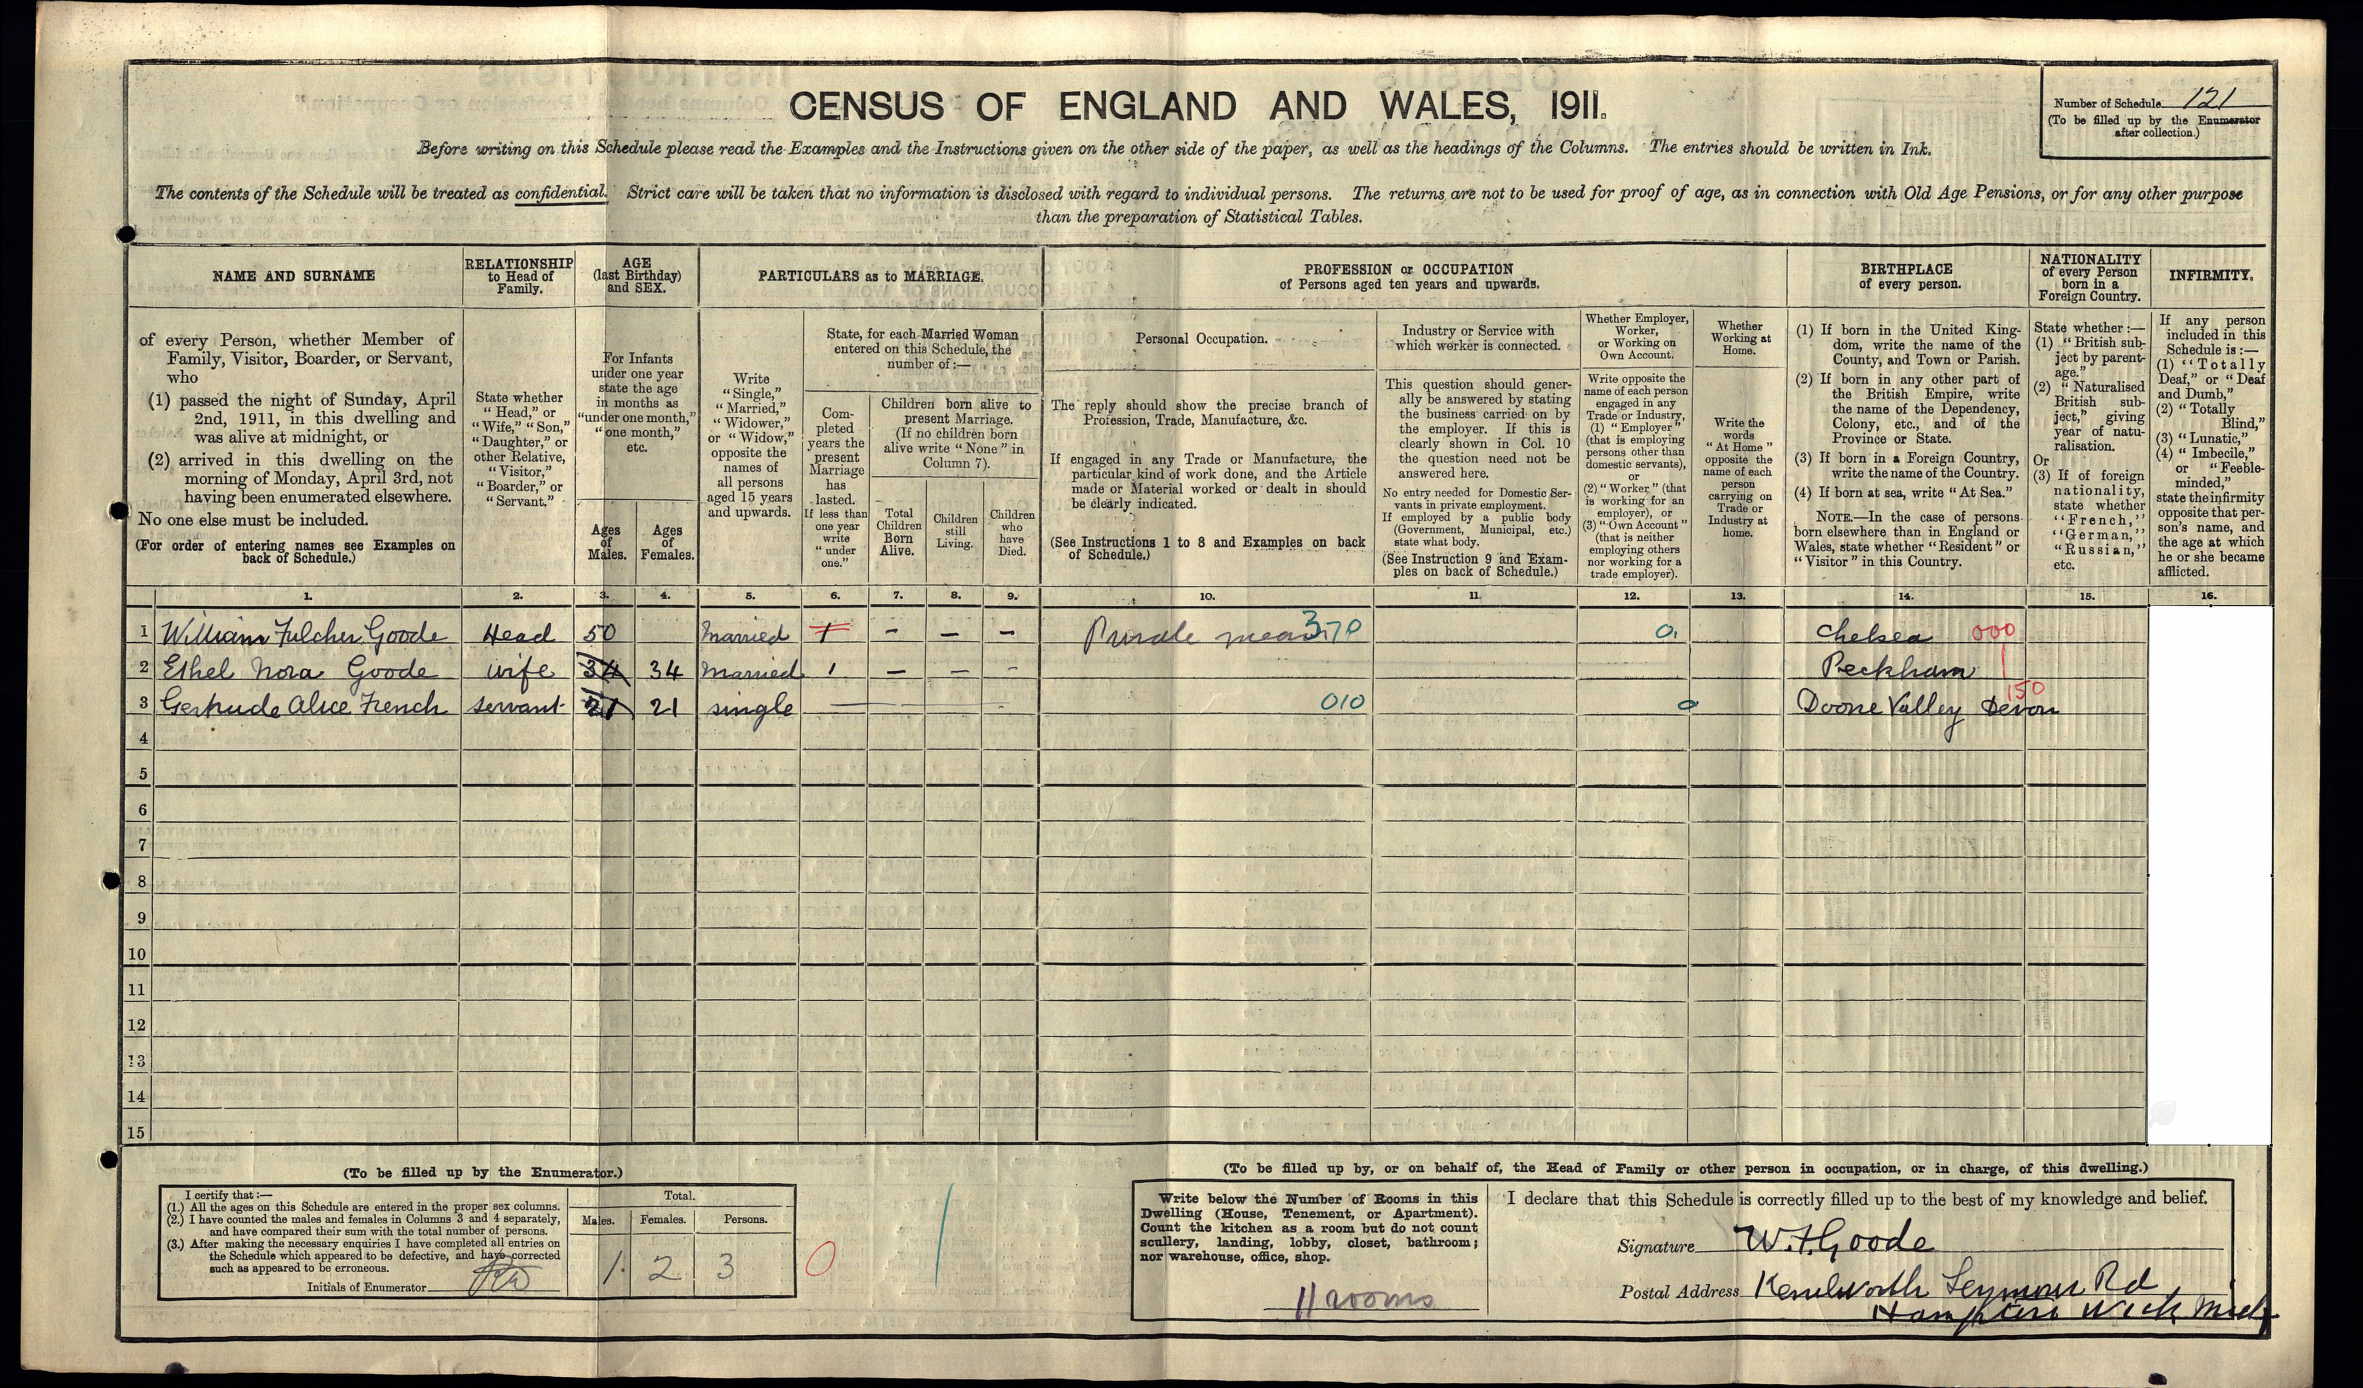 CENSUS OF ENGLAND AND WALES, 1911.
Number of Schedule 121
(To be filled up by the Enumerator
after collection.)
Before writing on this Schedule please read the Examples and the Instructions given on the other side of the paper, as well as the headings of the Columns. The entries should be written in Ink.
The contents of the Schedule will be treated as confidential. Strict care will be taken that no information is disclosed with regard to individual persons. The returns are not to be used for proof of age, as in connection with Old Age Pensions, or for any other purpose
than the preparation of Statistical Tables.
NAME AND SURNAME
of every Person, whether Member of
Family, Visitor, Boarder, or Servant,
who
(1) passed the night of Sunday, April
2nd, 1911, in this dwelling and
was alive at midnight, or
(2) arrived in this dwelling on the
morning of Monday, April 3rd, not
having been enumerated elsewhere.
No one else must be included.
(For order of entering names see Examples on
back of Schedule.)
RELATIONSHIP
to Head of
Family.
State whether
"Head," or
"Wife," "Son,"
"Daughter," or
other Relative,
"Visitor,"
"Boarder," or
"Servant."
AGE
(last Birthday)
and SEX.
For Infants
under one year
state the age
in months as
"under one month,"
"one month,"
etc.
Ages
of
Males.
Ages
of
Females.
PARTICULARS as to MARRIAGE.
Write
"Single,"
"Married,"
"Widower,"
or "Widow,"
opposite the
names of
all persons
aged 15 years
and upwards.
State, for each Married Woman
entered on this Schedule, the
number of:—
Com-
pleted
years the
present
Marriage
has
lasted.
If less than
one year
write
"under
one."
Children born alive to
present Marriage.
(If no children born
alive write "None" in
Column 7).
Total
Children
Born
Alive.
Children
still
Living.
Children
who
have
Died.
PROFESSION or OCCUPATION
of Persons aged ten years and upwards.
Personal Occupation.
The reply should show the precise branch of
Profession, Trade, Manufacture, &c.
If engaged in any Trade or Manufacture, the
particular kind of work done, and the Article
made or Material worked or dealt in should
be clearly indicated.
(See Instructions 1 to 8 and Examples on back
of Schedule.)
Industry or Service with
which worker is connected.
This question should gener-
ally be answered by stating
the business carried on by
the employer. If this is
clearly shown in Col. 10
the question need not be
answered here.
No entry needed for Domestic Ser-
vants in private employment.
If employed by a public body
(Government, Municipal, etc.)
state what body.
(See Instruction 9 and Exam-
ples on back of Schedule.)
Whether Employer,
Worker,
or Working on
Own Account.
Write opposite the
name of each person
engaged in any
Trade or Industry,
(1) "Employer"
(that is employing
persons other than
domestic servants),
or
(2) "Worker" (that
is working for an
employer), or
(3) "Own Account"
(that is neither
employing others
nor working for a
trade employer).
Whether
Working at
Home.
Write the
words
"At Home"
opposite the
name of each
person
carrying on
Trade or
Industry at
home.
BIRTHPLACE
of every person.
(1) If born in the United King-
dom, write the name of the
County, and Town or Parish.
(2) If born in any other part of
the British Empire, write
the name of the Dependency,
Colony, etc., and of the
Province or State.
(3) If born in a Foreign Country,
write the name of the Country.
(4) If born at sea, write "At Sea."
NOTE.—In the case of persons
born elsewhere than in England or
Wales, state whether "Resident" or
"Visitor" in this Country.
NATIONALITY
of every Person
born in a
Foreign Country.
State whether:—
(1) "British sub-
ject by parent-
age."
(2) "Naturalised
British sub-
ject," giving
year of natu-
ralisation.
Or
(3) If of foreign
nationality,
state whether
"French,"
"German,"
"Russian,"
etc.
INFIRMITY.
If any person
included in this
Schedule is:—
(1) "Totally
Deaf," or "Deaf
and Dumb,"
(2) "Totally
Blind,"
(3) "Lunatic,"
(4) "Imbecile,"
or "Feeble-
minded,"
state the infirmity
opposite that per-
son's name, and
the age at which
he or she became
afflicted.
1. 2. 3. 4. 5. 6. 7. 8. 9. 10. 11. 12. 13. 14. 15. 16.
1 William Fulcher Goode Head 50 Married 1 — — — Private means 370 0. Chelsea 000
2 Ethel Nora Goode wife 34 34 Married 1 — — — Peckham 1
3 Gertrude Alice French servant 21 21 single 010 0 Doone Valley Devon 150
4
5
6
7
8
9
10
11
12
13
14
15
(To be filled up by the Enumerator.)
I certify that:—
(1.) All the ages on this Schedule are entered in the proper sex columns.
(2.) I have counted the males and females in Columns 3 and 4 separately,
and have compared their sum with the total number of persons.
(3.) After making the necessary enquiries I have completed all entries on
the Schedule which appeared to be defective, and have corrected
such as appeared to be erroneous.
Initials of Enumerator
Total.
Males. Females. Persons.
1. 2 3
0
(To be filled up by, or on behalf of, the Head of Family or other person in occupation, or in charge, of this dwelling.)
Write below the Number of Rooms in this
Dwelling (House, Tenement, or Apartment).
Count the kitchen as a room but do not count
scullery, landing, lobby, closet, bathroom;
nor warehouse, office, shop.
11 rooms
I declare that this Schedule is correctly filled up to the best of my knowledge and belief.
Signature W. F. Goode
Postal Address Kenilworth Seymour Rd
Hampton Wick Middx